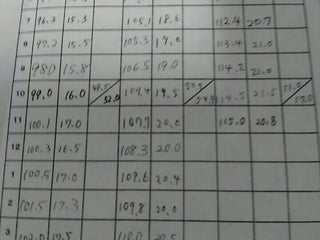 7 96.2 15.3 105.1 18.5 112.4 20.7
8 97.2 15.5 105.3 19.0 113.4 21.0
9 98.0 15.8 106.5 19.0 114.2 21.0
10 99.0 16.0 49.5/52.0 107.4 19.5 114.5 21.5
11 100.1 17.0 20.0 115.0 20.8
12 100.3 16.5 108.3 20.0
1 100.5 17.0 109.6 20.4
2 101.5 17.3 109.8 20.0
3